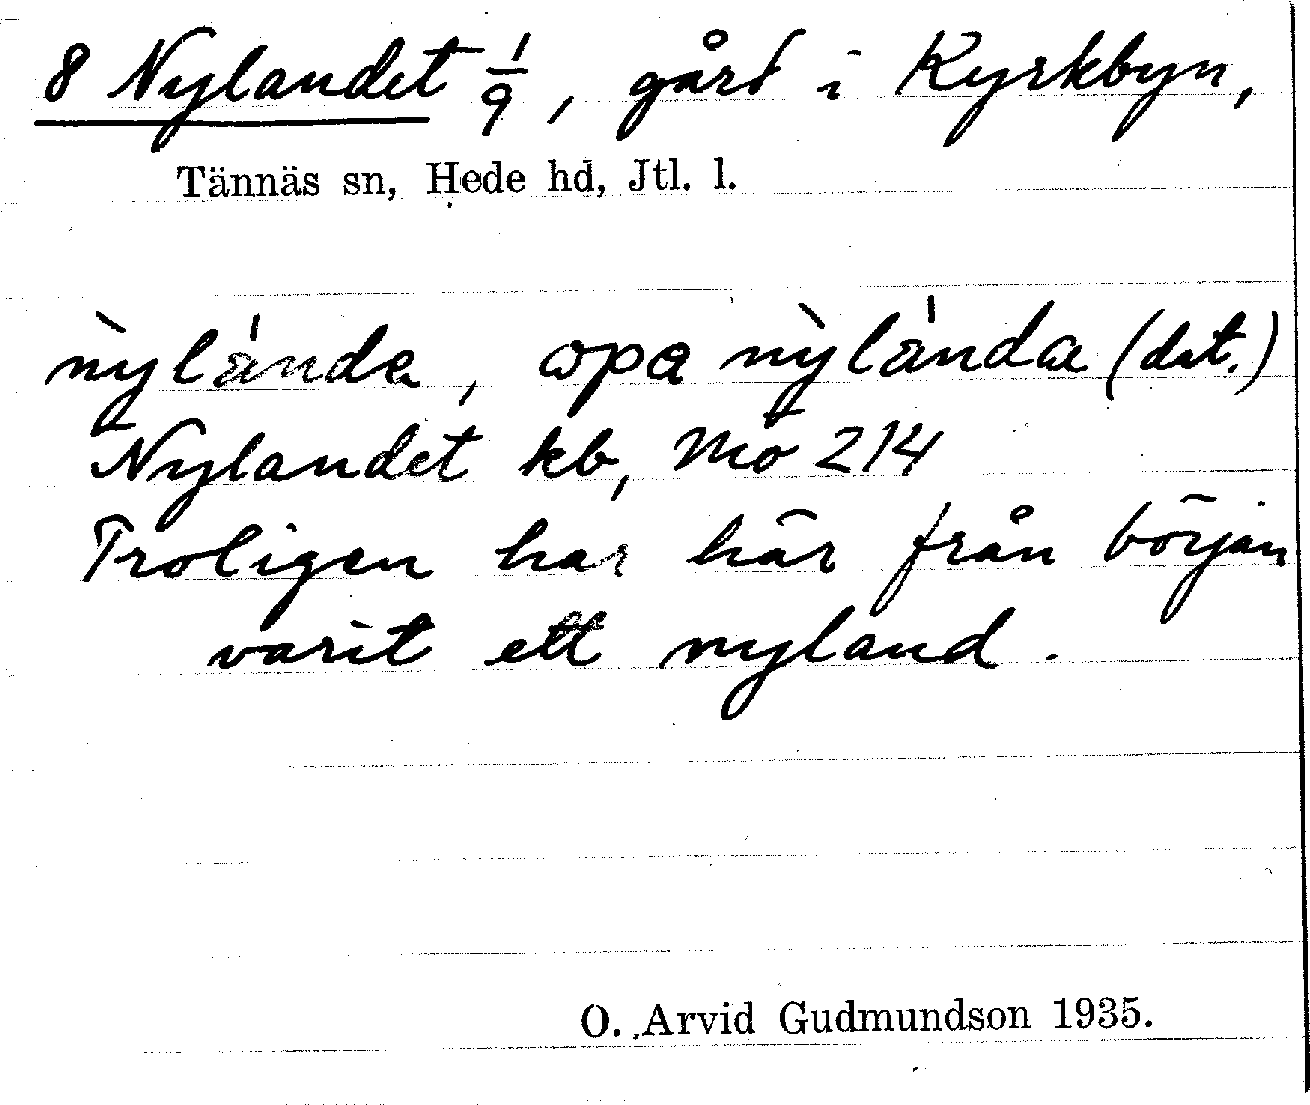 8 Nylandet 1/9, gård i Kyrkbyn,
Tännäs sn, Hede hd, Jtl. l.
nỳlánda, opa nỳlánda (dat.)
Nylandet kb, Mö 214
Troligen har här från början
varit ett nyland.
O. Arvid Gudmundson 1935.